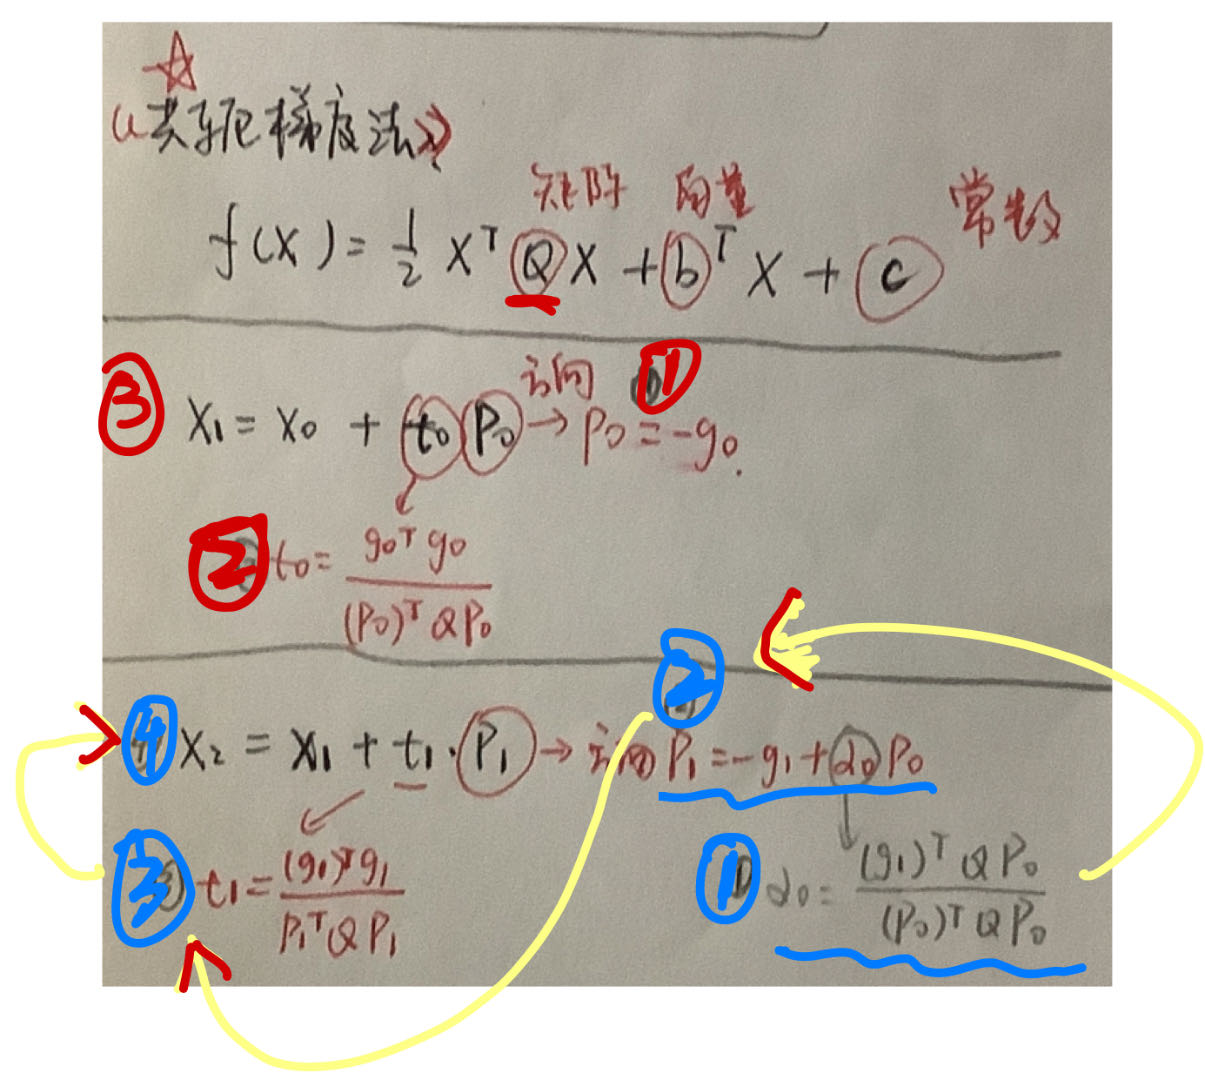 《共轭梯度法》
矩阵 向量 常数
f(X) = 1/2 X^T Q X + b^T X + c
方向 ①
③ X₁ = X₀ + t₀ P₀ → P₀ = -g₀.
② t₀ = g₀^T g₀ / (P₀)^T Q P₀
②
④ X₂ = X₁ + t₁·P₁ → 方向 P₁ = -g₁ + α₀ P₀
③ t₁ = (g₁)^T g₁ / P₁^T Q P₁
① α₀ = (g₁)^T Q P₀ / (P₀)^T Q P₀